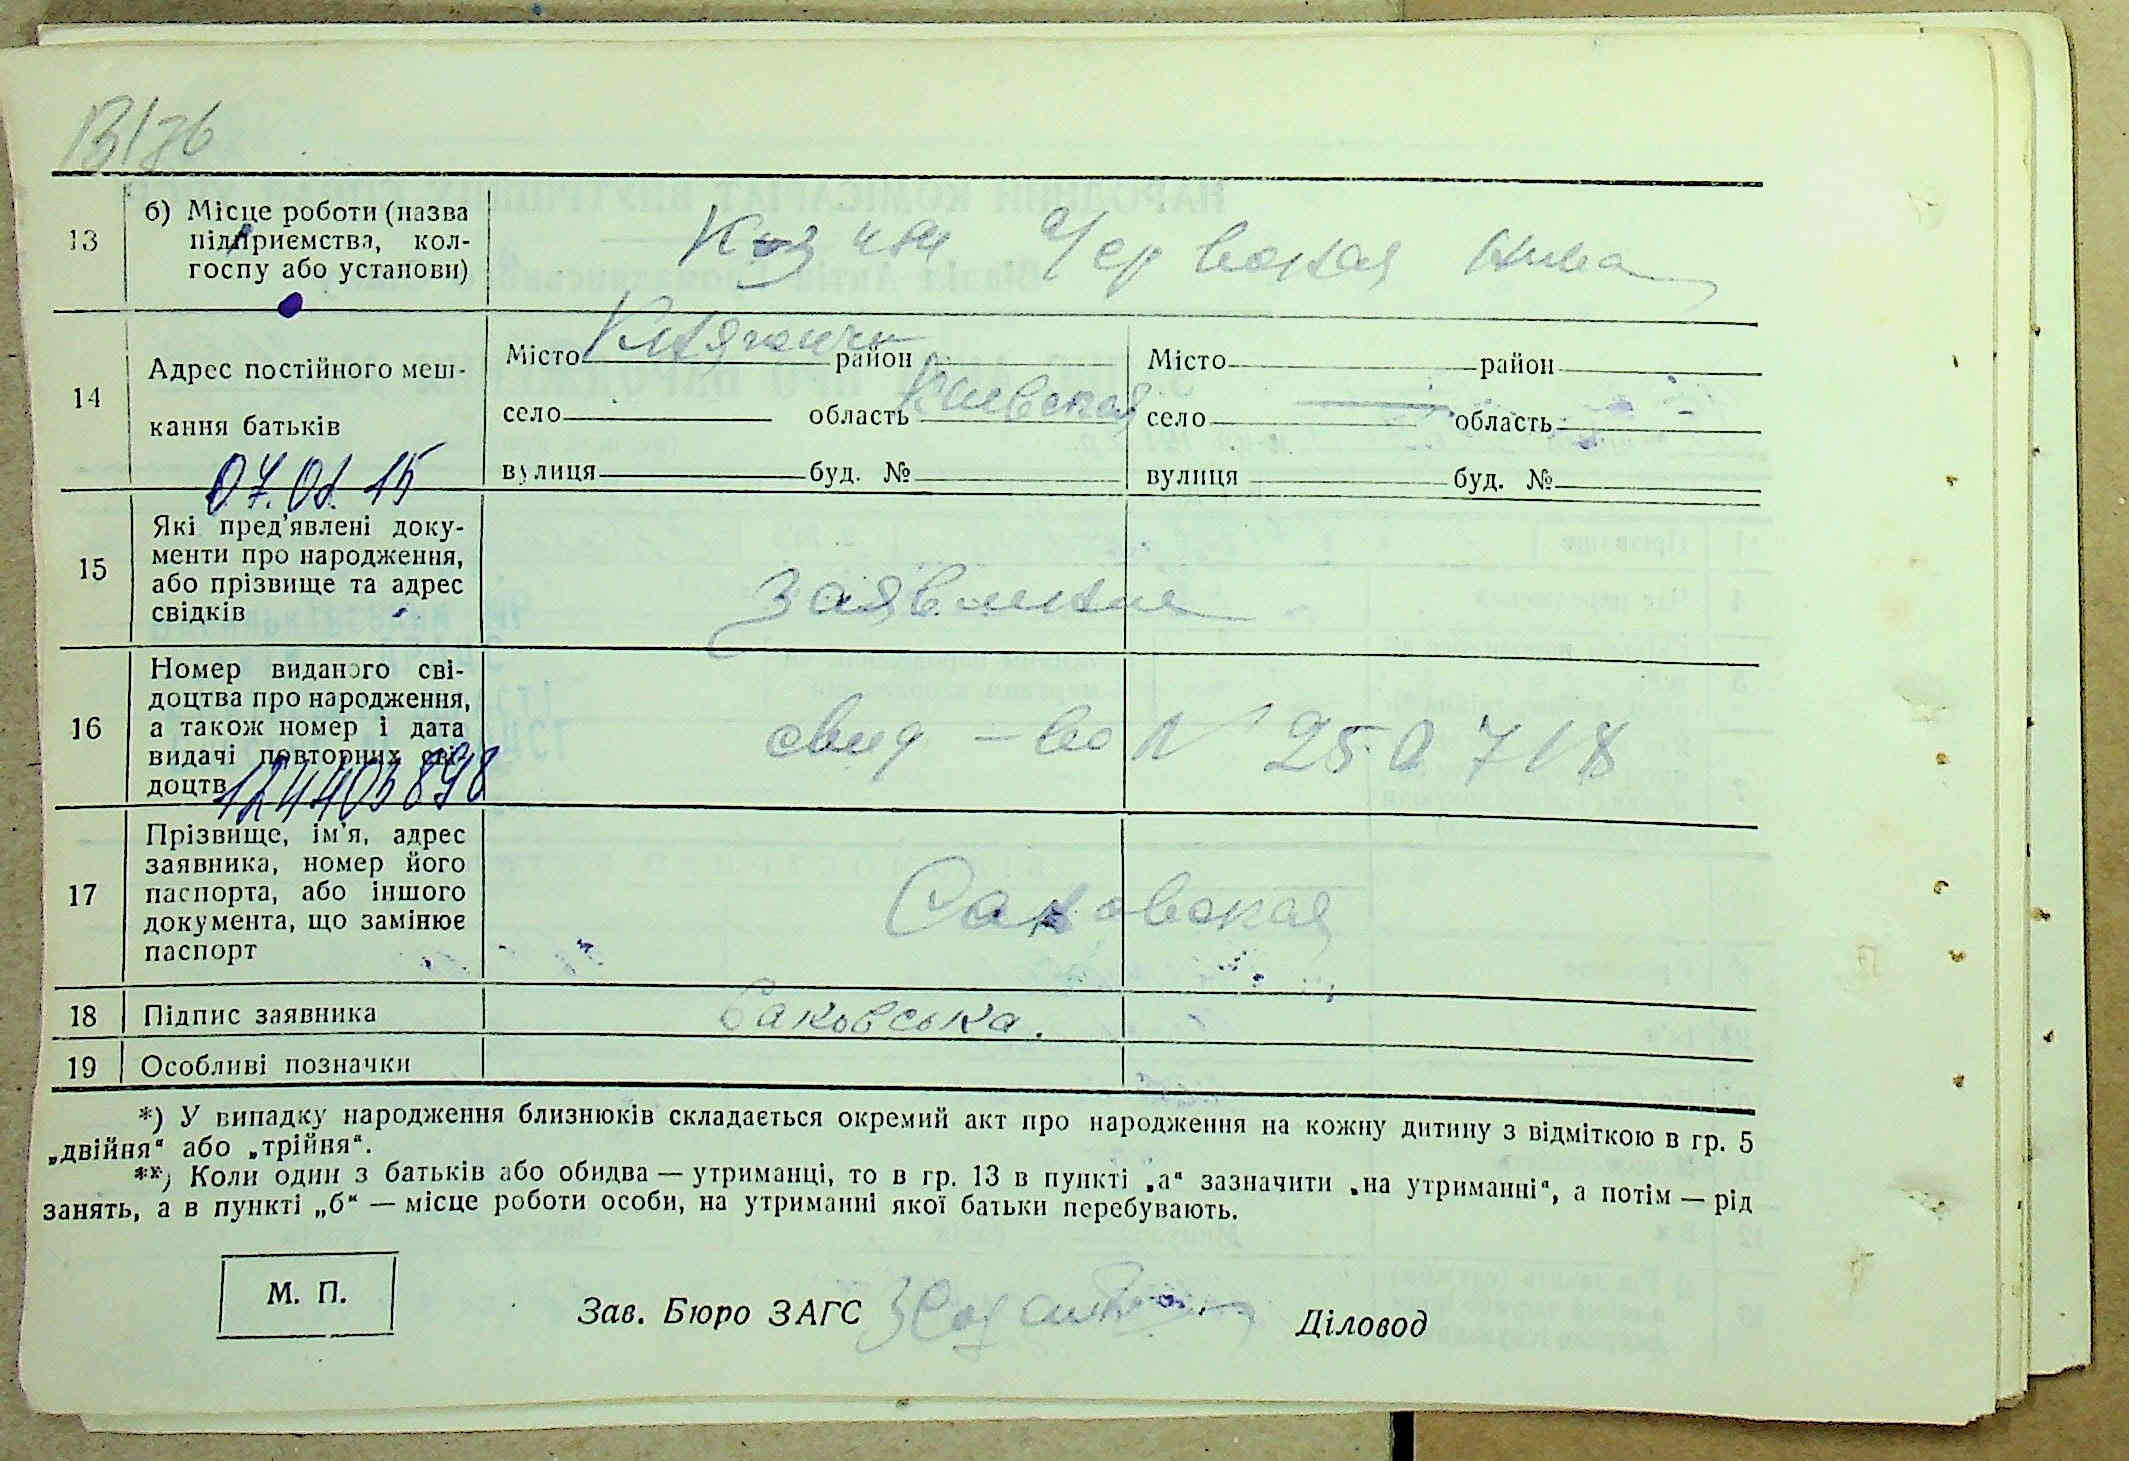 13
б) Місце роботи (назва
підприємства, кол-
госпу або установи)
Червоная Нива
14
Адрес постійного меш-
кання батьків
Місто район
село область Киевская
вулиця буд. №
Місто район
село область
вулиця буд. №
07.01.15
15
Які пред'явлені доку-
менти про народження,
або прізвище та адрес
свідків
заявление
16
Номер виданого сві-
доцтва про народження,
а також номер і дата
видачі повторних сві-
доцтв
свид-во № 250718
17
Прізвище, ім'я, адрес
заявника, номер його
паспорта, або іншого
документа, що замінює
паспорт
Саковская
18
Підпис заявника
Саковська.
19
Особливі позначки
*) У випадку народження близнюків складається окремий акт про народження на кожну дитину з відміткою в гр. 5
„двійня“ або „трійня“.
**) Коли один з батьків або обидва — утриманці, то в гр. 13 в пункті „а“ зазначити „на утриманні“, а потім — рід
занять, а в пункті „б“ — місце роботи особи, на утриманні якої батьки перебувають.
М. П.
Зав. Бюро ЗАГС
Діловод